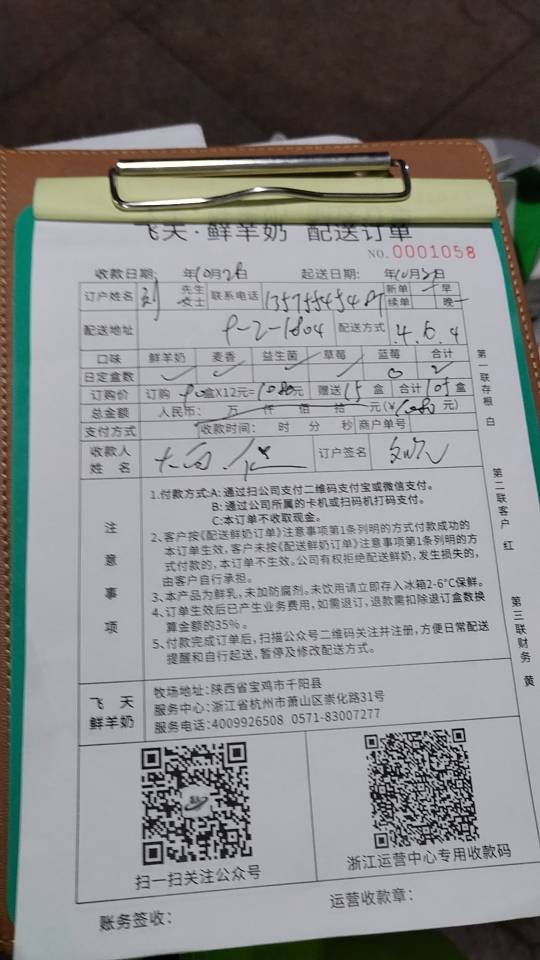 飞天·鲜羊奶 配送订单
NO.0001058
收款日期: 年10月28日 起送日期: 年10月 日
订户姓名 刘 先生 女士 联系电话 新单 早
续单 晚
配送地址 9-2-1804 配送方式
口味 鲜羊奶 麦香 益生菌 草莓 蓝莓 合计
日定盒数 ✓ ✓ ✓ ✓ 0 2
订购价 订购 90盒X12元=1080元 赠送15盒 合计105盒
总金额 人民币: 万 仟 佰 拾 元(¥1080元)
支付方式 收款时间: 时 分 秒 商户单号
收款人姓名 订户签名
注意事项
1.付款方式:A: 通过扫公司支付二维码支付宝或微信支付。
B: 通过公司所属的卡机或扫码机打码支付。
C:本订单不收取现金。
2、客户按《配送鲜奶订单》注意事项第1条列明的方式付款成功的
本订单生效,客户未按《配送鲜奶订单》注意事项第1条列明的方
式付款的,本订单不生效。公司有权拒绝配送鲜奶,发生损失的,
由客户自行承担。
3、本产品为鲜乳,未加防腐剂。未饮用请立即存入冰箱2-6°C保鲜。
4、订单生效后已产生业务费用,如需退订,退款需扣除退订盒数换
算金额的35%。
5、付款完成订单后,扫描公众号二维码关注并注册,方便日常配送
提醒和自行起送,暂停及修改配送方式。
飞天
鲜羊奶
牧场地址:陕西省宝鸡市千阳县
服务中心:浙江省杭州市萧山区崇化路31号
服务电话:4009926508 0571-83007277
扫一扫关注公众号
浙江运营中心专用收款码
账务签收:
运营收款章:
第一联存根 白
第二联客户 红
第三联财务 黄